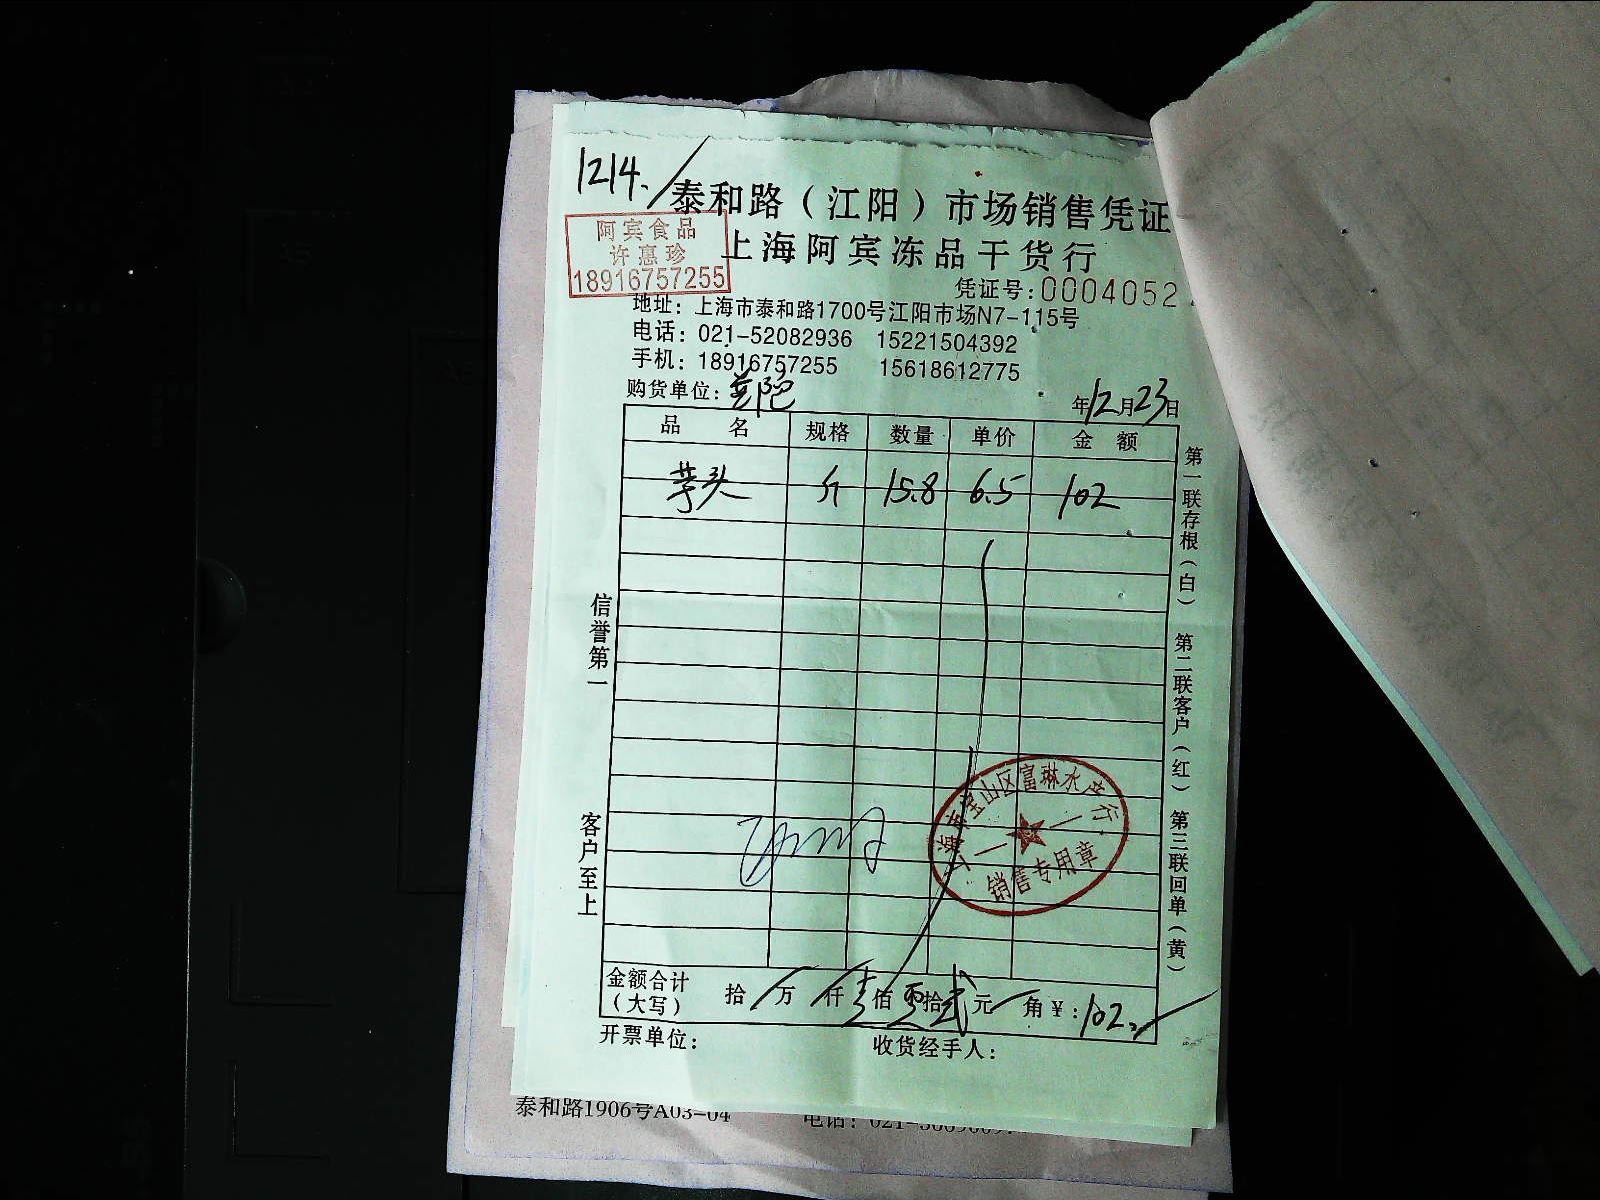 1214.
泰和路（江阳）市场销售凭证
阿宾食品
许惠珍
18916757255
上海阿宾冻品干货行
凭证号:0004052
地址：上海市泰和路1700号江阳市场N7-115号
电话：021-52082936 15221504392
手机：18916757255 15618612775
购货单位:
年12月23日
品名 规格 数量 单价 金额
芋头 斤 15.8 6.5 102
信誉第一
客户至上
第一联存根（白） 第二联客户（红） 第三联回单（黄）
上海市宝山区富琳水产行
销售专用章
金额合计（大写） 拾 万 仟 壹佰零拾贰元 角 ¥:102.
开票单位： 收货经手人：
泰和路1906号A03-04 电话：021-